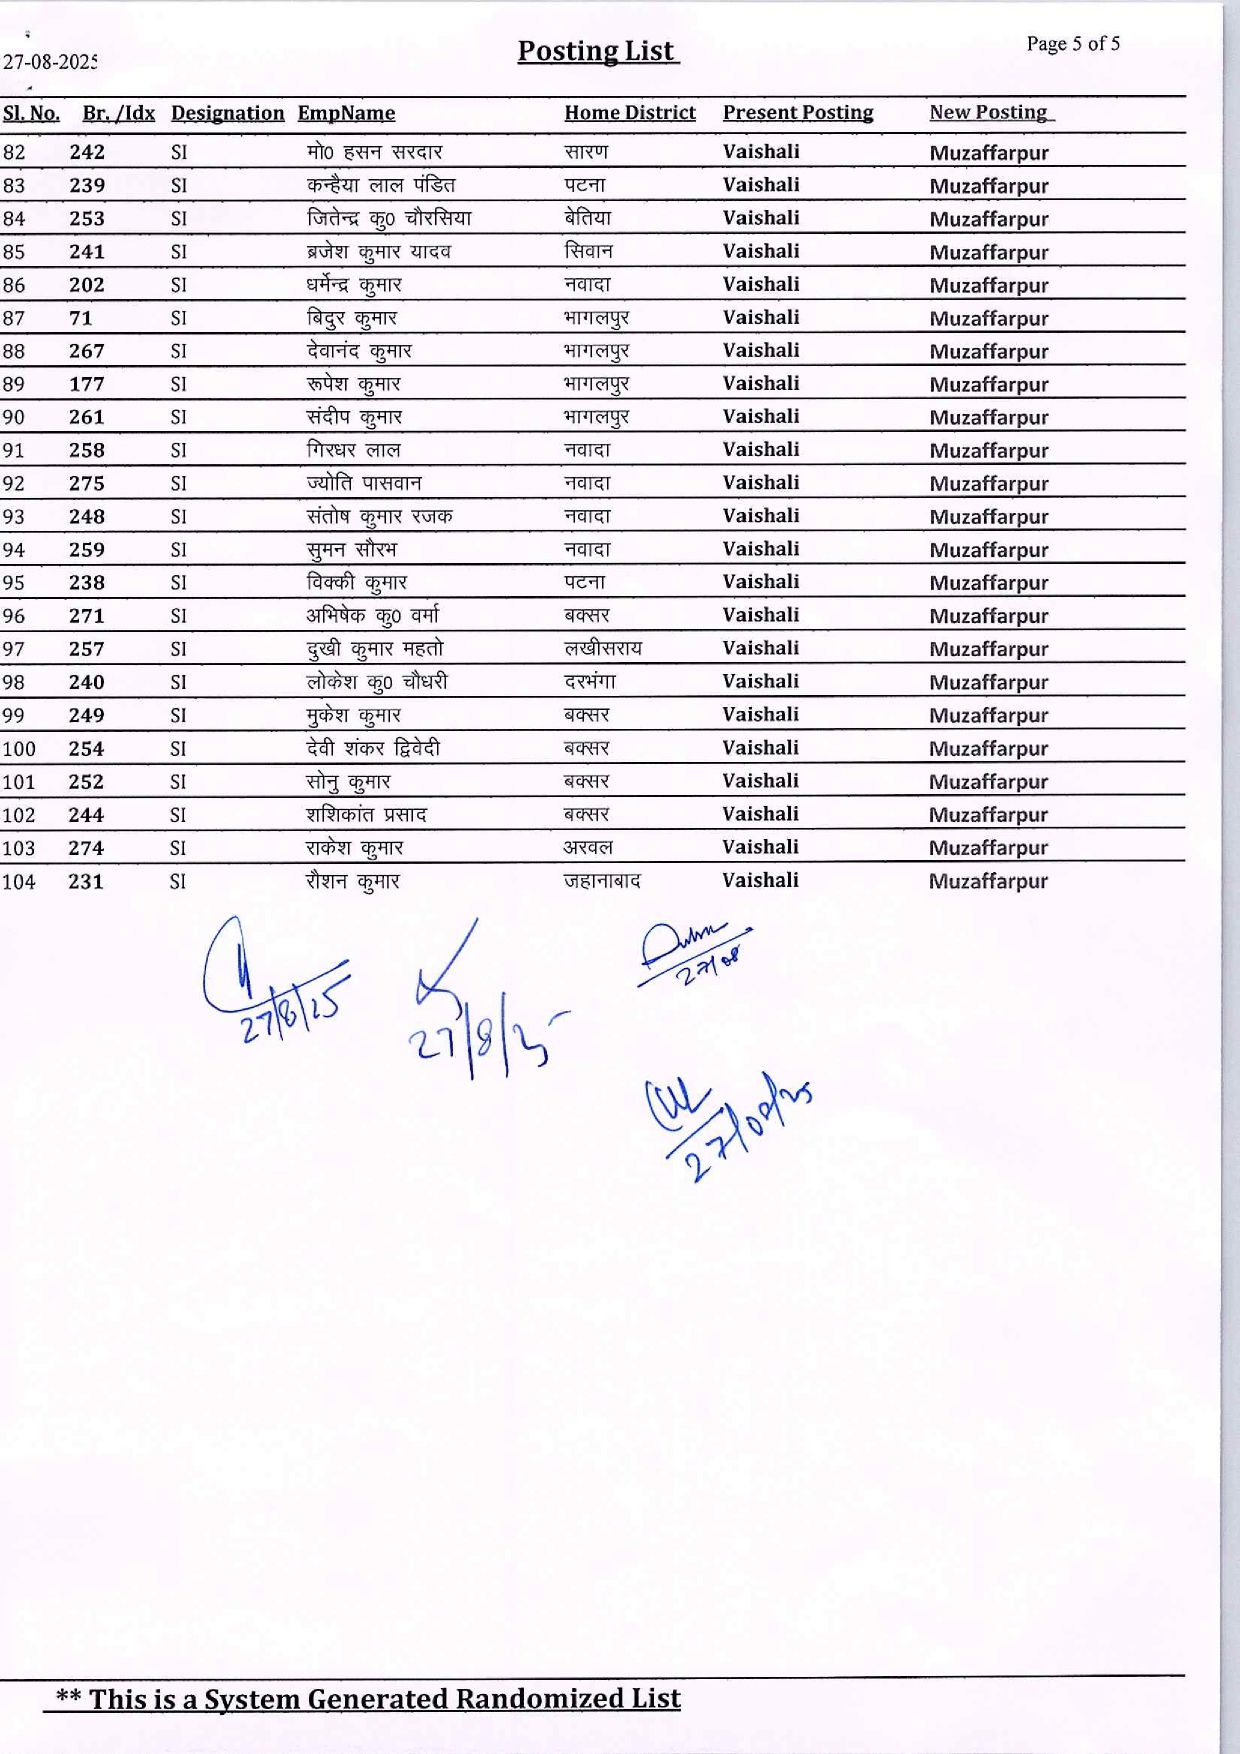 27-08-2025
Posting List
Page 5 of 5
Sl. No. Br. /Idx Designation EmpName Home District Present Posting New Posting
82 242 SI मो0 हसन सरदार सारण Vaishali Muzaffarpur
83 239 SI कन्हैया लाल पंडित पटना Vaishali Muzaffarpur
84 253 SI जितेन्द्र कु0 चौरसिया बेतिया Vaishali Muzaffarpur
85 241 SI ब्रजेश कुमार यादव सिवान Vaishali Muzaffarpur
86 202 SI धर्मेन्द्र कुमार नवादा Vaishali Muzaffarpur
87 71 SI बिदुर कुमार भागलपुर Vaishali Muzaffarpur
88 267 SI देवानंद कुमार भागलपुर Vaishali Muzaffarpur
89 177 SI रूपेश कुमार भागलपुर Vaishali Muzaffarpur
90 261 SI संदीप कुमार भागलपुर Vaishali Muzaffarpur
91 258 SI गिरधर लाल नवादा Vaishali Muzaffarpur
92 275 SI ज्योति पासवान नवादा Vaishali Muzaffarpur
93 248 SI संतोष कुमार रजक नवादा Vaishali Muzaffarpur
94 259 SI सुमन सौरभ नवादा Vaishali Muzaffarpur
95 238 SI विक्की कुमार पटना Vaishali Muzaffarpur
96 271 SI अभिषेक कु0 वर्मा बक्सर Vaishali Muzaffarpur
97 257 SI दुखी कुमार महतो लखीसराय Vaishali Muzaffarpur
98 240 SI लोकेश कु0 चौधरी दरभंगा Vaishali Muzaffarpur
99 249 SI मुकेश कुमार बक्सर Vaishali Muzaffarpur
100 254 SI देवी शंकर द्विवेदी बक्सर Vaishali Muzaffarpur
101 252 SI सोनु कुमार बक्सर Vaishali Muzaffarpur
102 244 SI शशिकांत प्रसाद बक्सर Vaishali Muzaffarpur
103 274 SI राकेश कुमार अरवल Vaishali Muzaffarpur
104 231 SI रौशन कुमार जहानाबाद Vaishali Muzaffarpur
27/8/25
27/8/25
27/08
27/08/25
** This is a System Generated Randomized List